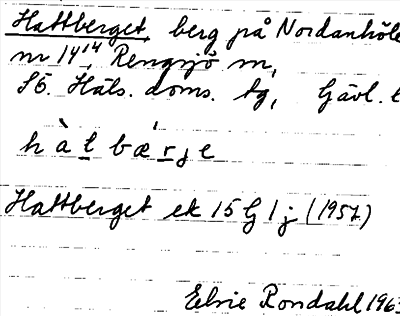 Hattberget, berg på Nordanhöle
nr 14¹⁴, Rengsjö sn,
Sö. Häls. doms. tg, Gävl. l
hàt bǽrje
Hattberget ek 15 G 1 j (1957)
Elsie Rondahl 1963